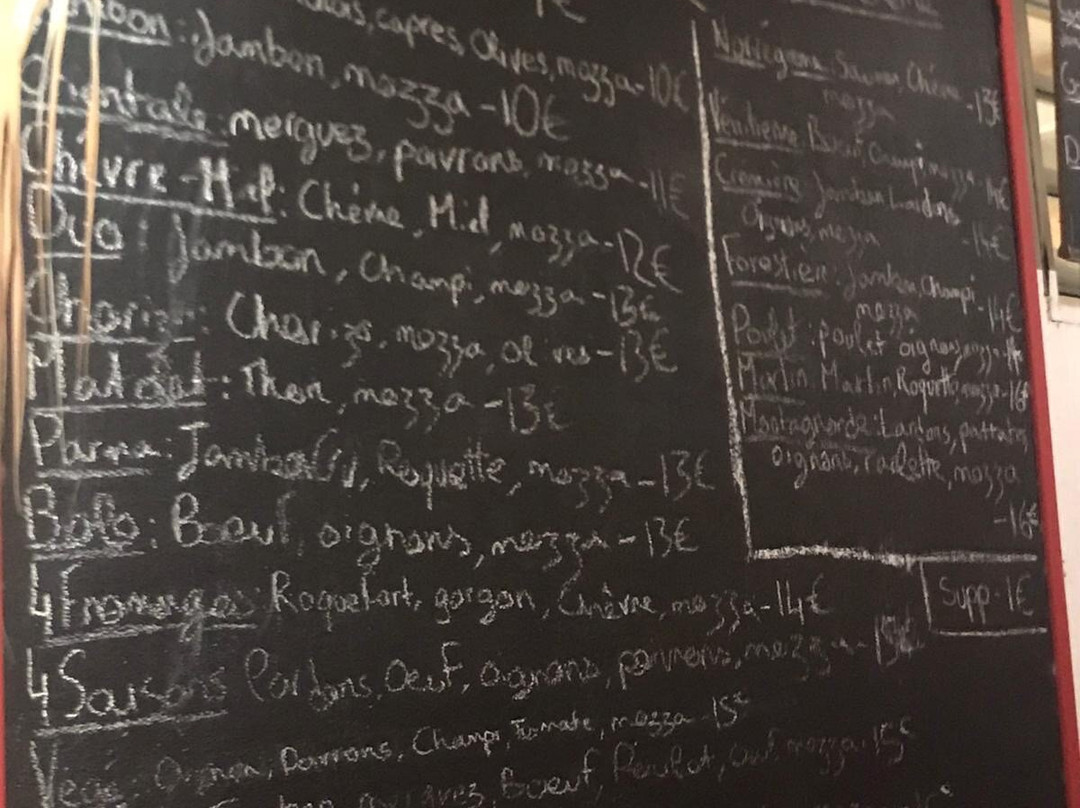 capres, Olives, mozza - 10€
Jambon, mozza - 10€
Orientale : merguez, poivrons, mozza - 11€
Chèvre - Miel : Chèvre, Miel, mozza - 12€
Duo : Jambon, Champi, mozza - 13€
Chorizo : Chorizo, mozza, olives - 13€
Matelot : Thon, mozza - 13€
Parma : Jambon Cru, Roquette, mozza - 13€
Bolo : Boeuf, oignons, mozza - 13€
4 Fromages Roquefort, gorgon, Chèvre, mozza - 14€
4 Saisons Lardons, Oeuf, oignons, poivrons, mozza -
Végé : Oignon, Poivrons, Champi, Tomate, mozza - 15€
merguez, Boeuf, Poulet, oeuf mozza - 15€
Norvégienne : Saumon, Chèvre - 13€
mozza
Champi, mozza
Crémière : Jambon Lardons
Oignons, mozza - 14€
Forestière : Jambon, Champi
mozza - 14€
Poulet : poulet oignons, mozza
Roquette, mozza - 16€
Montagnarde : Lardons, pattates,
oignons, raclette, mozza
- 16€
Supp - 1€